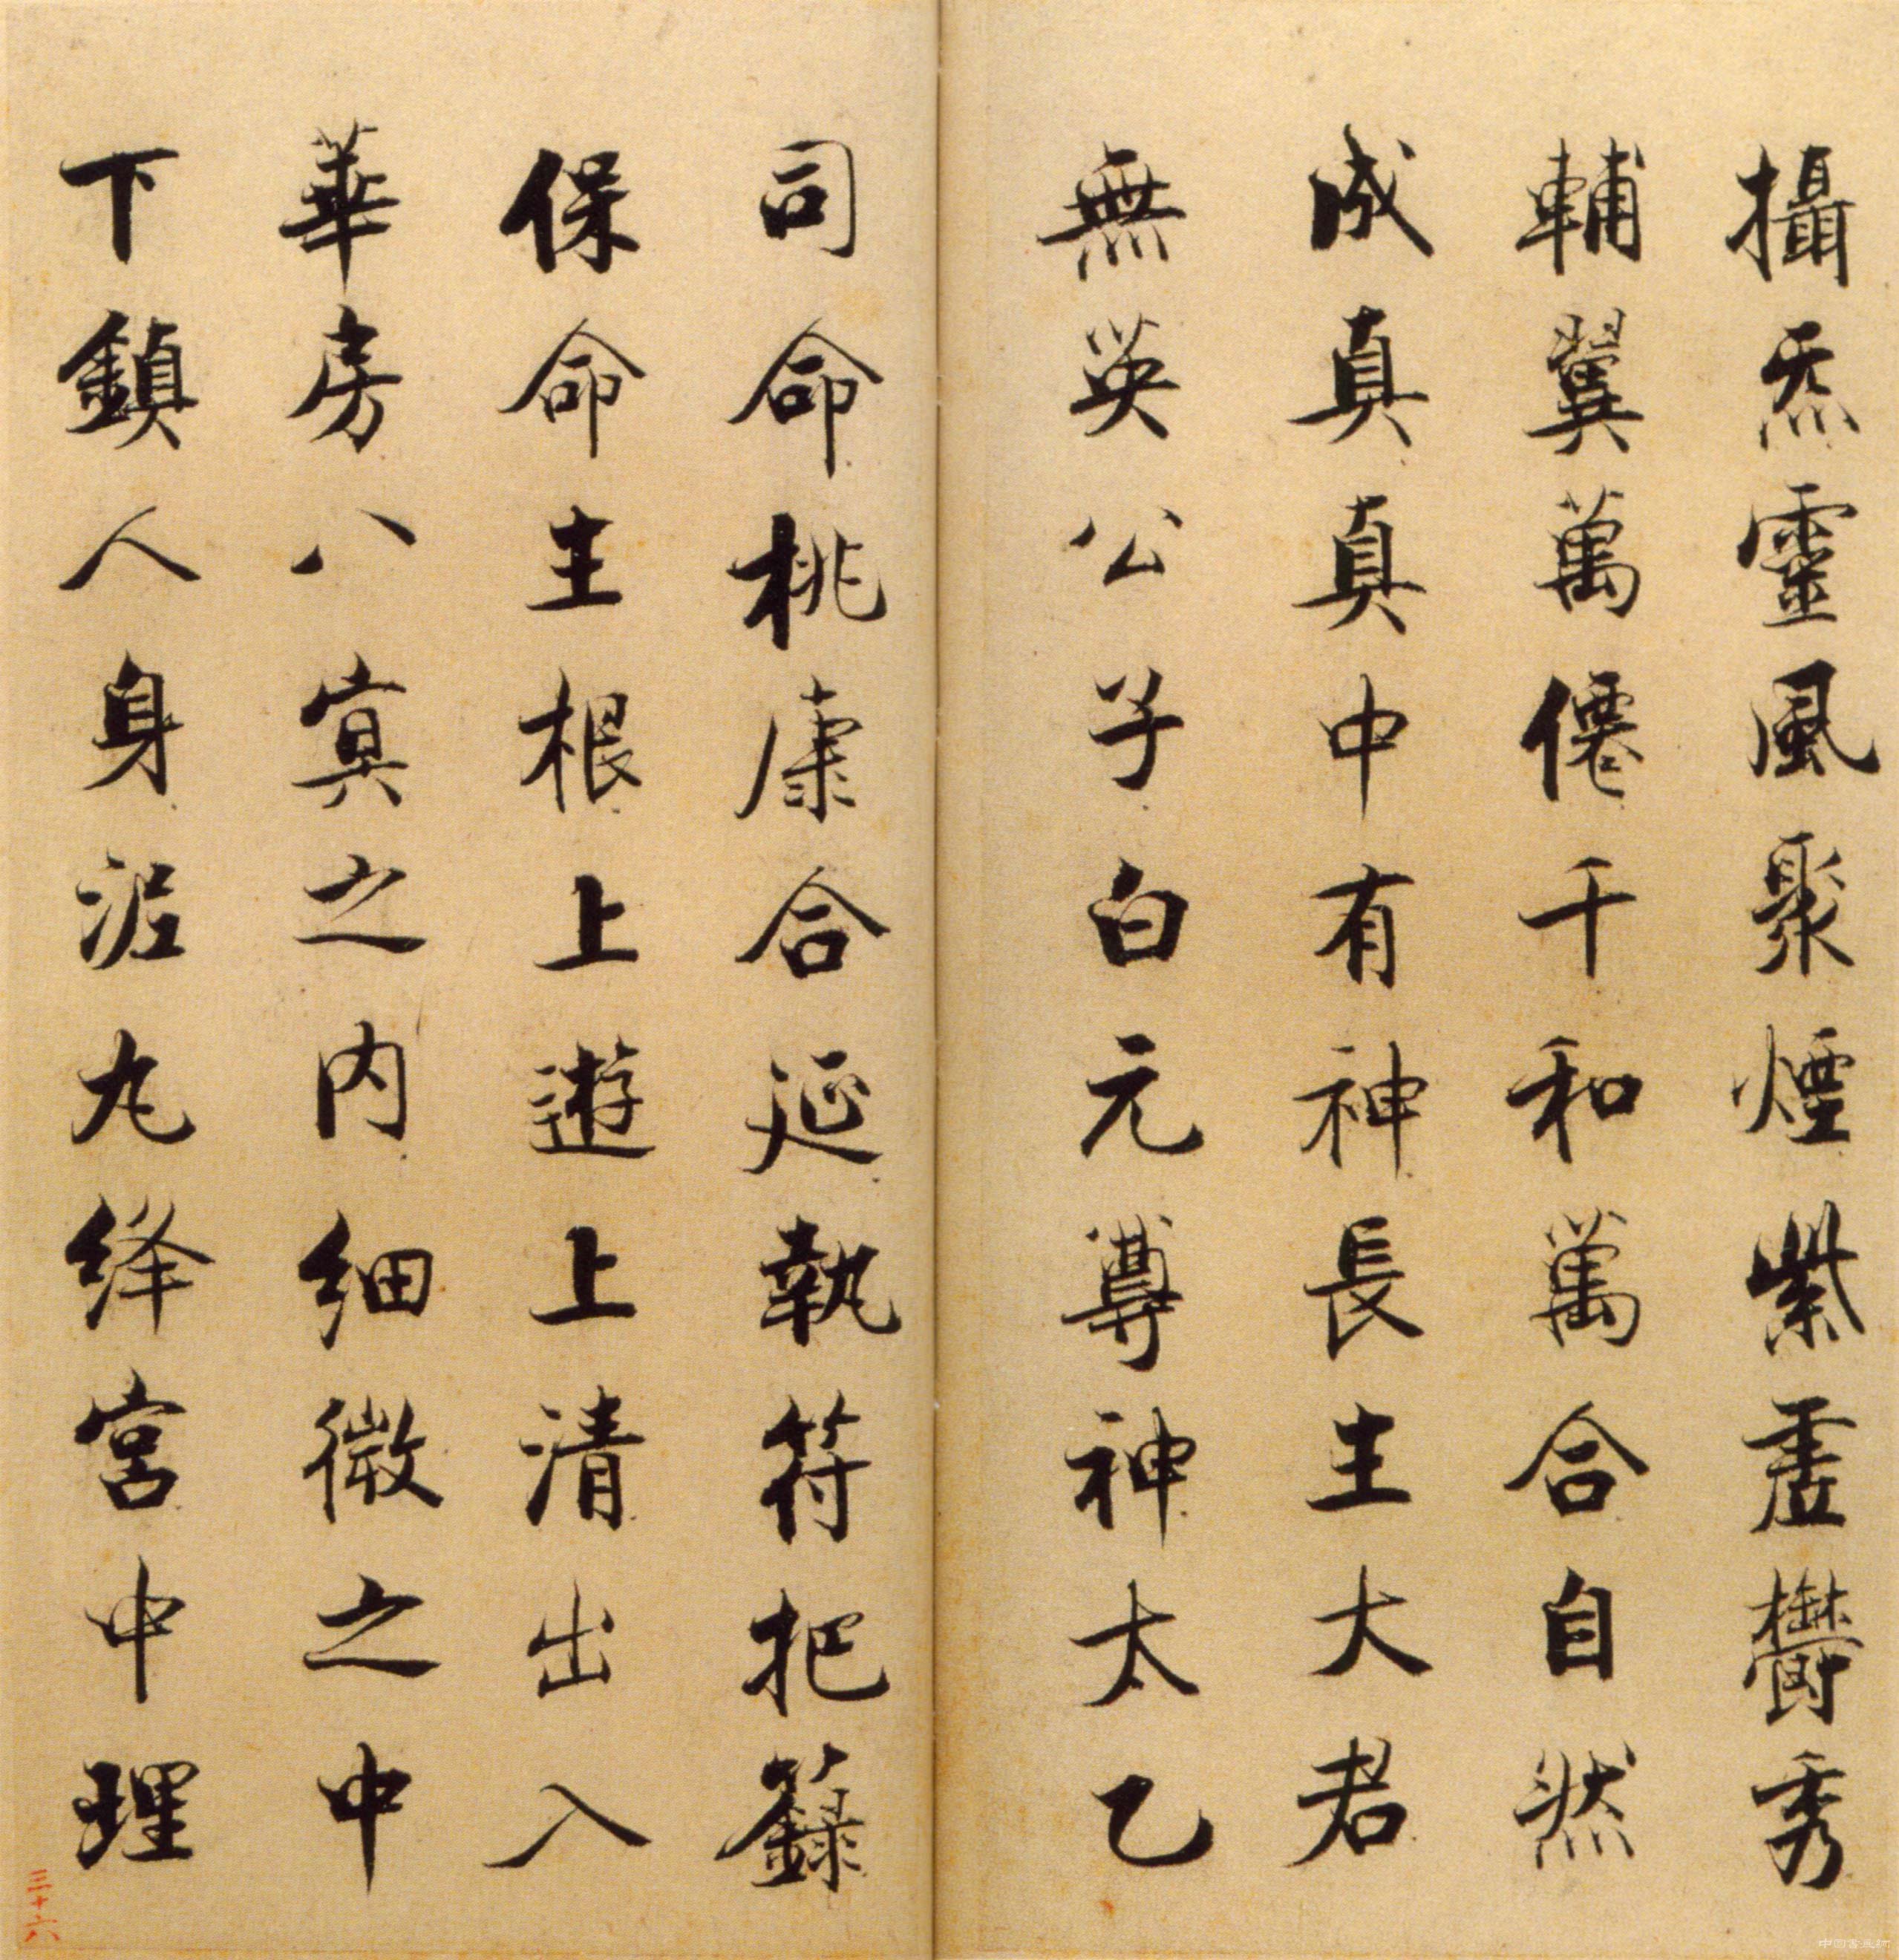 攝炁靈風聚煙紫虛欝秀
輔翼萬僊千和萬合自然
成真真中有神長生大君
無英公子白元尊神太乙
司命桃康合延執符把籙
保命生根上遊上清出入
華房八寘之内細微之中
下鎮人身泥丸絳宮中理
三十六